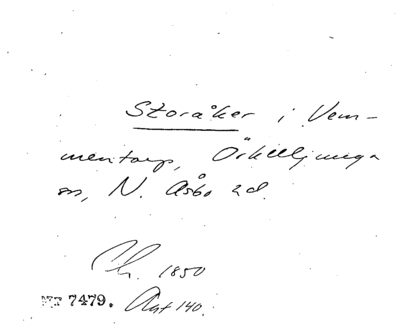 Storåker i Vem-
mentorp, Örkelljunga
sn, N. Åsbo hd.
Ch. 1850
7479. Ant 140.